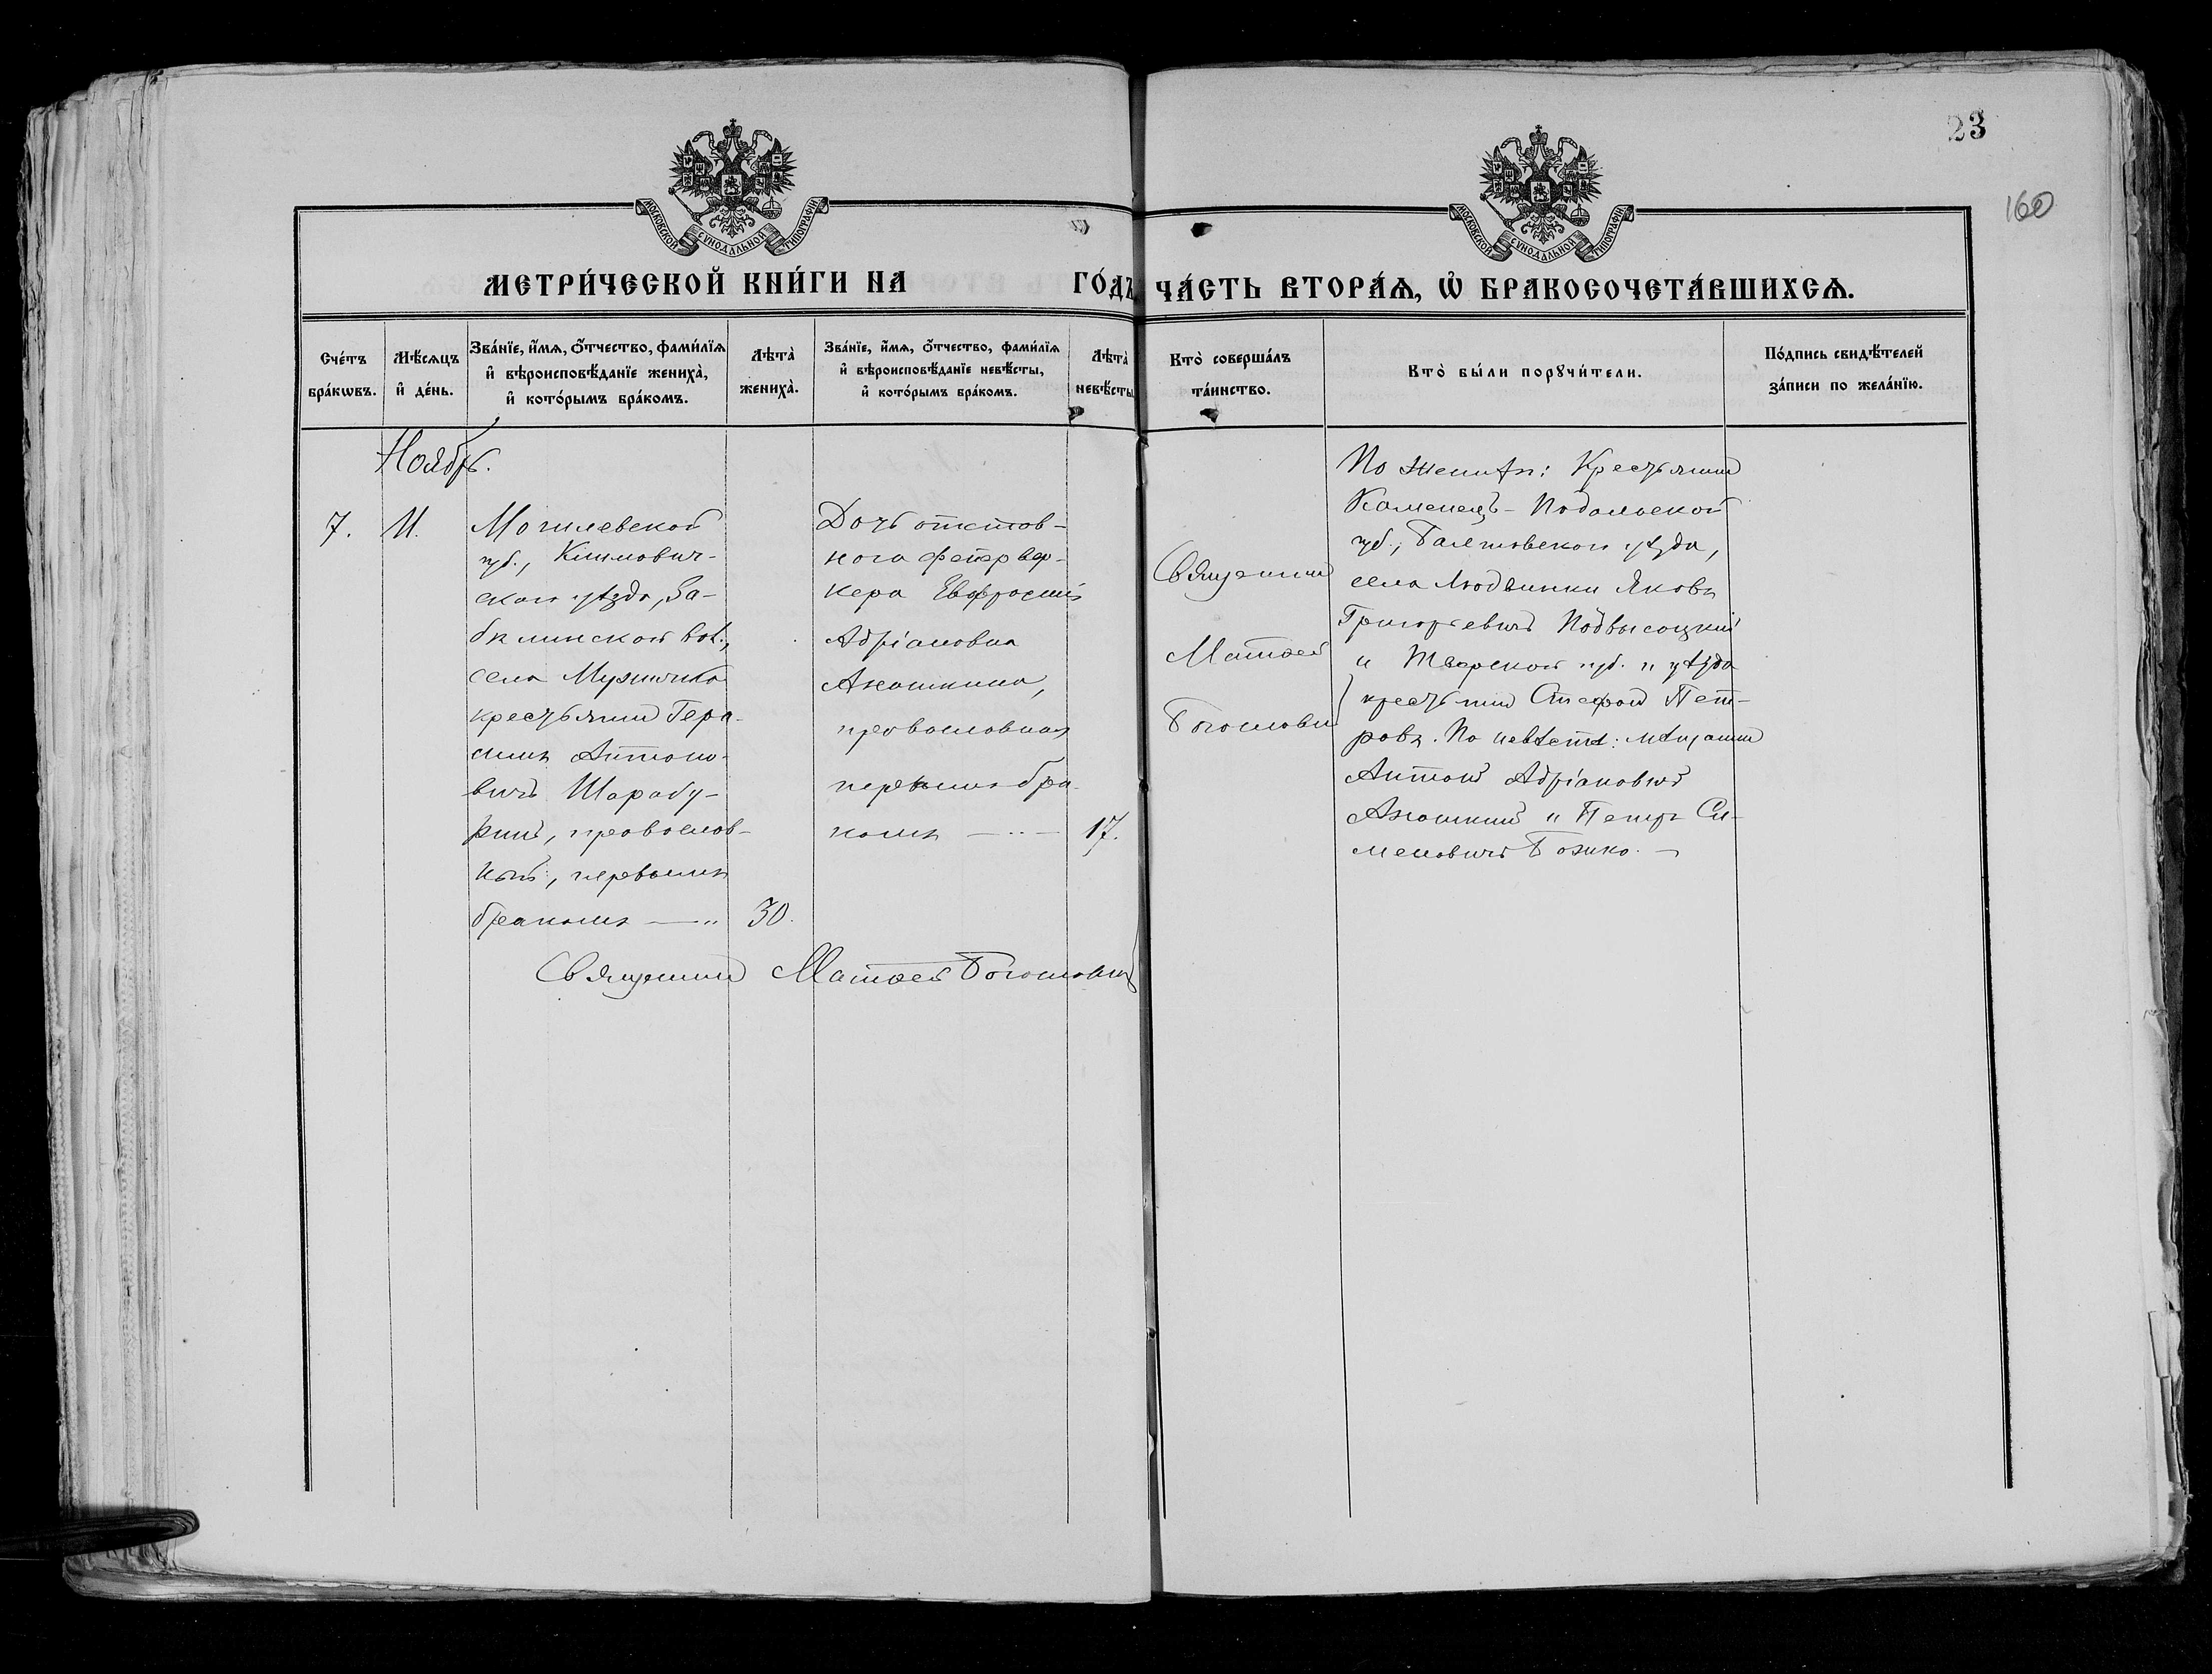 23
160
МОСКОВСКОЙ СѴНОДАЛЬНОЙ ТИПОГРАФІИ
МОСКОВСКОЙ СѴНОДАЛЬНОЙ ТИПОГРАФІИ
МЕТРИ́ЧЕСКОЙ КНИ́ГИ НА ГО́ДЪ
ЧА́СТЬ ВТОРА́Ѧ, Ѡ҆ БРАКОСОЧЕТА́ВШИХСѦ.
Сче́тъ
бра́кѡвъ.
Мѣ́сѧцъ
и҆ де́нь.
Зва́нїе, и҆́мѧ, ѻ҆́тчество, фами́лїѧ
и҆ вѣроисповѣ́данїе жениха̀,
и҆ кото́рымъ бра́комъ.
Лѣта̀
жениха̀.
Зва́нїе, и҆́мѧ, ѻ҆́тчество, фами́лїѧ
и҆ вѣроисповѣ́данїе невѣ́сты,
и҆ кото́рымъ бра́комъ.
Лѣта̀
невѣ́сты
Кто̀ соверша́лъ
та́инство.
Кто̀ бы́ли порꙋчи́тели.
По́дпись свидѣ́телей
за́писи по жела́нїю.
Ноябрь.
7.
11.
Могилевской
губ., Климович-
скаго уѣзда, За-
бѣлинской вол.,
села
крестьянинъ Гера-
симъ Антоно-
вичъ Шарабу-
ринъ, православ-
ный, первымъ
бракомъ
30.
Дочь отстав-
ного фейервер-
кера Евфросинія
Адріановна
Анашкина,
православная
первымъ бра-
комъ
17.
Священникъ
Матѳей
Богословск
По женихѣ: Крестьянинъ
Каменецъ-Подольской
губ., Балтовскаго уѣзда,
села Людвинки Яковъ
Григорьевичъ Подвысоцкій
и Тверской губ. и уѣзда
крестьянинъ Стефанъ Пет-
ровъ. По невѣстѣ: мѣщанинъ
Антонъ Адріановичъ
Анашкинъ и Петръ Си-
меновичъ Божко.
Священникъ Матѳей Богословск